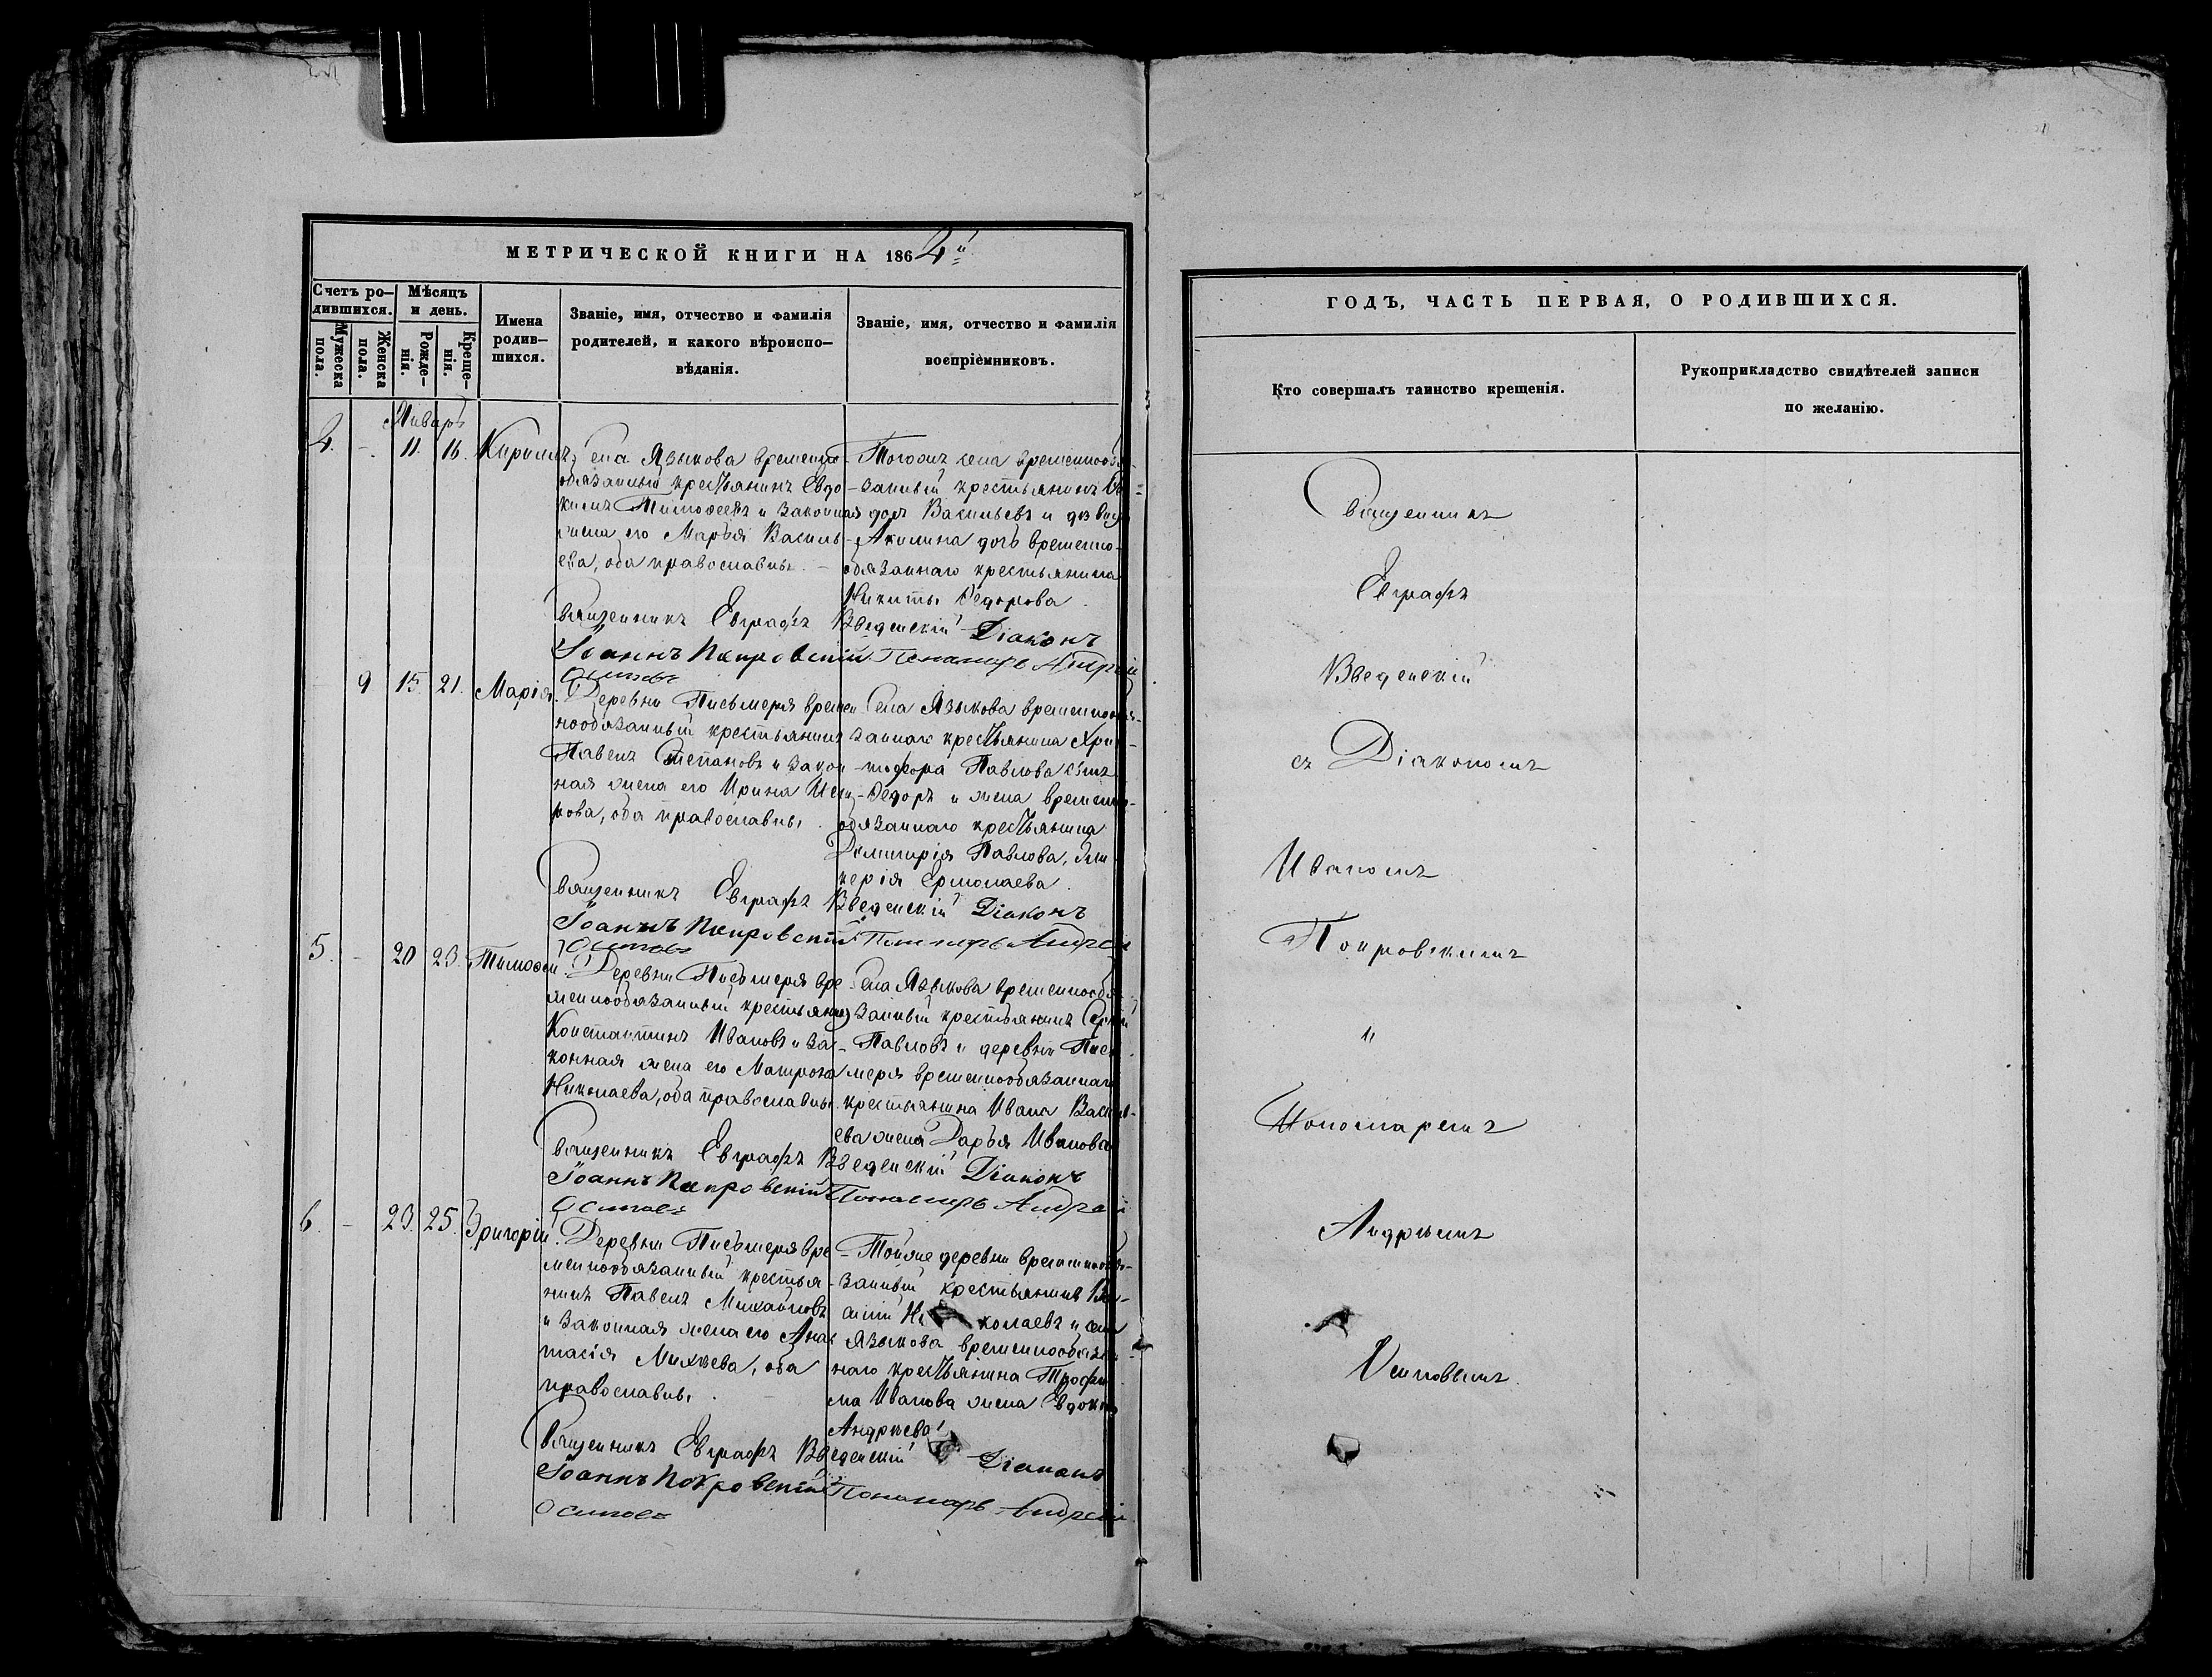 МЕТРИЧЕСКОЙ КНИГИ НА 1862й
Счетъ ро-
дившихся.
Мужеска
пола.
Женска
пола.
Мѣсяцъ
и день.
Рожде-
нія.
Креще-
нія.
Имена
родив-
шихся.
Званіе, имя, отчество и фамилія
родителей, и какого вѣроиспо-
вѣданія.
Званіе, имя, отчество и фамилія
воспріемниковъ.
Январь
4. - 11. 16. Кириллъ
Села Языкова временно
обязанный крестьянинъ Евдо-
кимъ Тимоѳеевъ и законная
жена его Марѳа Василь-
ева, оба православны. -
Тогожъ села временнообя-
занный крестьянинъ
Васильевъ и дѣвица
Акилина дочь временно-
обязаннаго крестьянина
Никиты Ѳедорова.
Священникъ Евграфъ Введенскій Діаконъ
Іоаннъ Покровскій Пономарь Андрей
Осиповъ
9 15. 21. Марія.
Деревни Письмеря времен
нообязанный крестьянинъ
Павелъ Степановъ и закон
ная жена его Ирина
оба православны.
Села Языкова временнообя-
заннаго крестьянина Хри-
стофора Павлова сынъ
Ѳедоръ и жена временно-
обязаннаго крестьянина
Димитрія Павлова, Гли-
керія Ермолаева.
Священникъ Евграфъ Введенскій Діаконъ
Іоаннъ Покровскій Пономарь Андрей
Осиповъ
5. - 20 23. Тимоѳей
Деревни Письмеря вре
меннообязанный крестьянинъ
Константинъ Ивановъ и за-
конная жена его Матрона
Николаева, оба православны.
Села Языкова временнообя-
занный крестьянинъ Сергѣй
Павловъ и деревни Пись
меря временнообязаннаго
крестьянина Ивана Василь-
ева жена Дарья Иванова
Священникъ Евграфъ Введенскій Діаконъ
Іоаннъ Покровскій Пономарь Андрей
Осиповъ
6. - 23. 25. Григорій.
Деревни Письмеря вре
меннообязанный крестья-
нинъ Павелъ Михайловъ
и законная жена его Анас
тасія Михѣева, оба
православны.
Тойже деревни временнообя-
занный крестьянинъ Ва-
силій Николаевъ и села
Языкова временнообязан-
наго крестьянина Трофи
ма Иванова жена Евдокія
Андрѣева
Священникъ Евграфъ Введенскій Діаконъ
Іоаннъ Покровскій Пономарь Андрей
Осиповъ
ГОДЪ, ЧАСТЬ ПЕРВАЯ, О РОДИВШИХСЯ.
Кто совершалъ таинство крещенія.
Рукоприкладство свидѣтелей записи
по желанію.
Священникъ
Евграфъ
Введенскій
съ Діакономъ
Иваномъ
Покровскимъ
и
Пономаремъ
Андреемъ
Осиповымъ.